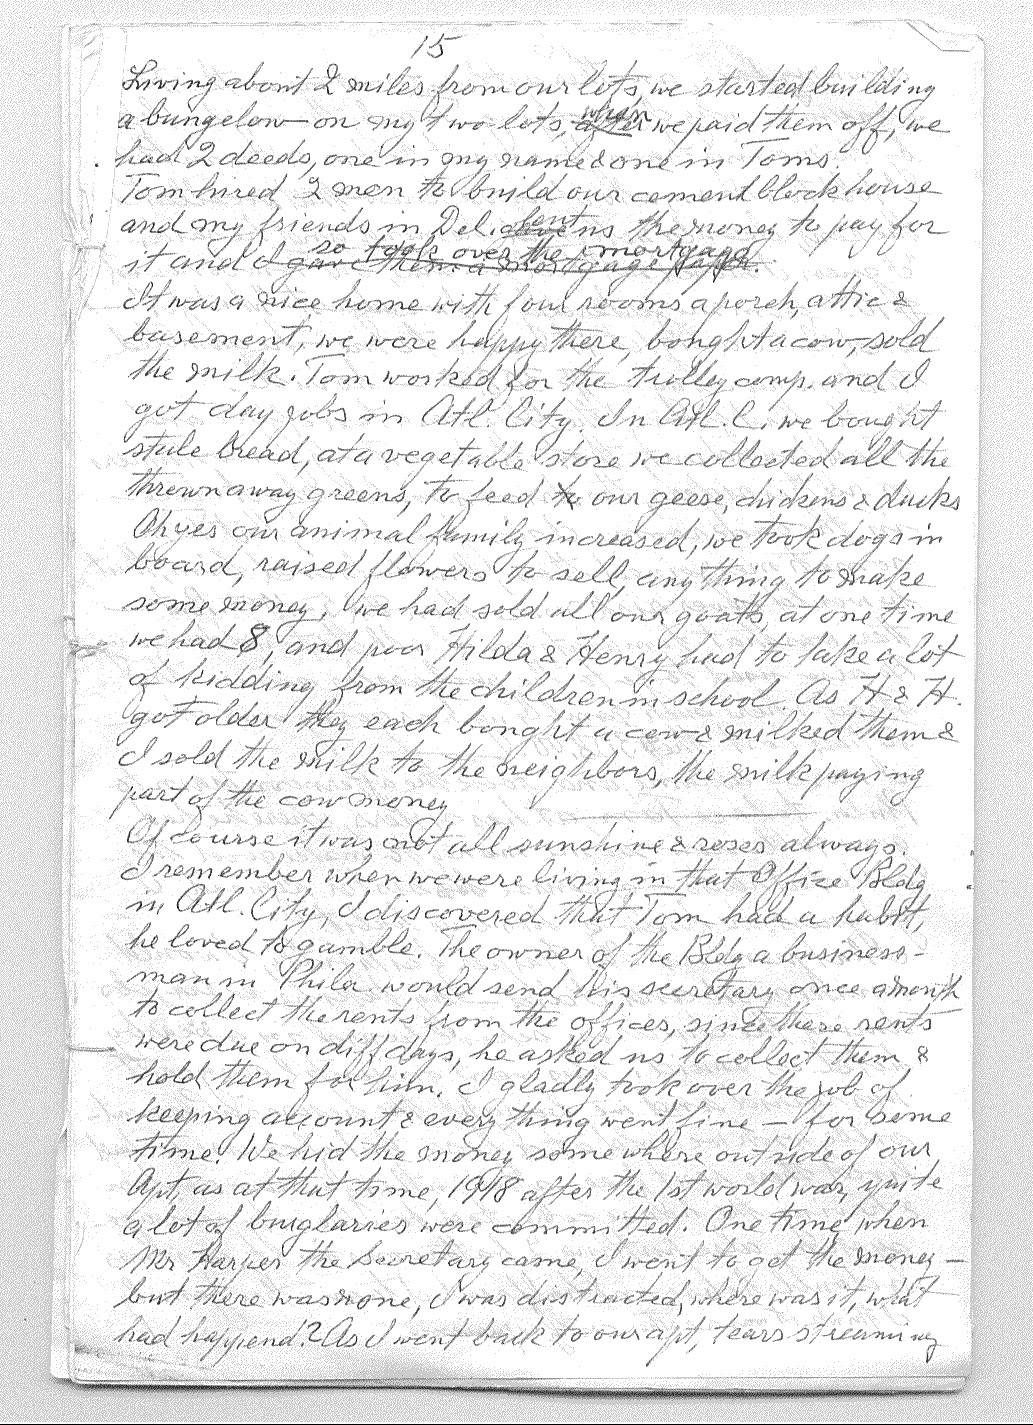 15
Living about 2 miles from our lots, we started building
a bungelow on my two lots, after when we paid them off, we
had 2 deeds, one in my name & one in Toms.
Tom hired 2 men to build our cement block house
and my friends in Del. lent us the money to pay for
it and I gave them a mortgage so took over the mortgage
It was a nice home with four rooms a porch, attic &
basement, we were happy there, bought a cow, sold
the milk. Tom worked for the trolley comp. and I
got day jobs in Atl. City. In Atl. C. we bought
stale bread, at a vegetable store we collected all the
thrown away greens, to feed to our geese, chickens & ducks
Oh yes our animal family increased, we took dogs in
board, raised flowers to sell, anything to make
some money, we had sold all our goats, at one time
we had 8, and poor Hilda & Henry had to take a lot
of kidding from the children in school. As H & H.
got older they each bought a cow & milked them &
I sold the milk to the neighbors, the milk paying
part of the cow money
Of course it was not all sunshine & roses always.
I remember when we were living in that Office Bldg
in Atl. City, I discovered that Tom had a habit,
he loved to gamble. The owner of the Bldg a business-
man in Phila. would send his secretary once a month
to collect the rents from the offices, since these rents
were due on diff days, he asked us to collect them &
hold them for him. I gladly took over the job of
keeping account & everything went fine – for some
time. We hid the money somewhere outside of our
Apt, as at that time, 1918 after the 1st world war, quite
a lot of burglaries were committed. One time, when
Mr Harper the Secretary came, I went to get the money –
but there was none, I was distracted, where was it, what
had happend? As I went back to our apt, tears streaming